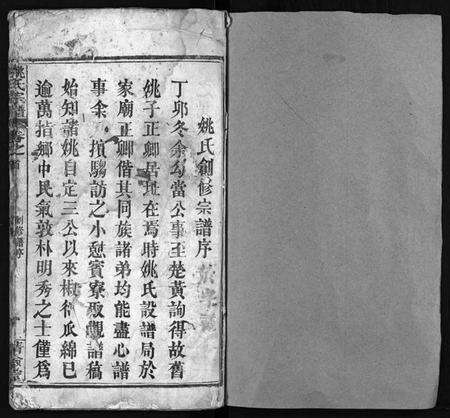 姚氏創修宗譜序
丁卯冬余勾當公事至楚黃詢得故舊
姚子正卿居址在焉時姚氏設譜局於
家廟正卿偕其同族諸弟均能盡心譜
事余 擯騶訪之小憩賓寮取觀譜稿
始知諸姚自定三公以來椒衍瓜綿已
逾萬指鄉中民氣敦朴明秀之士僅為
姚氏宗譜
卷之
創修譜序